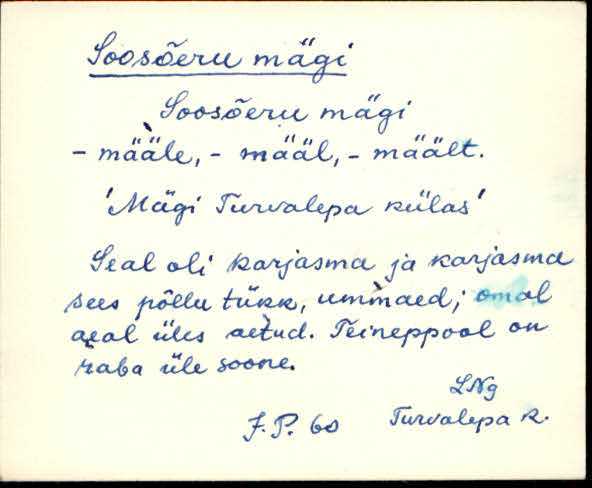 Soosõeru mägi
Soosõeru mägi
- mä̀äle, - määl, - mäält.
'Mägi Turvalepa külas'
Seal oli karjasma ja karjasma
sees põllu tükk, ummaed; omal
aeal üles aetud. Teineppool on
raba üle soone.
LNg
J. P. 60 Turvalepa k.